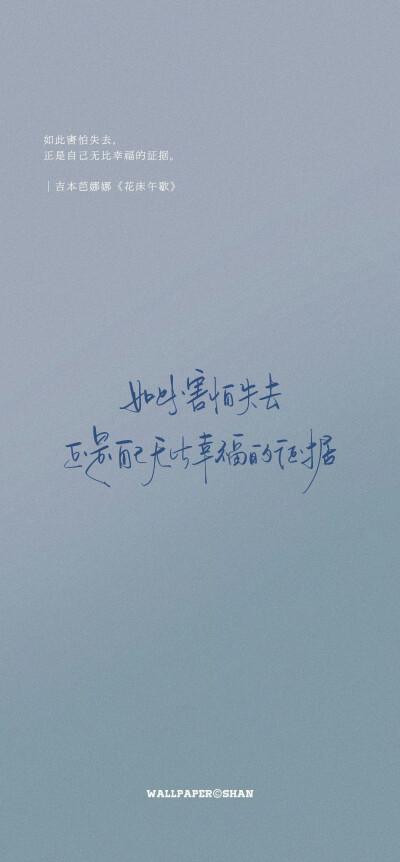 如此害怕失去，
正是自己无比幸福的证据。
｜吉本芭娜娜《花床午歇》
如此害怕失去
正是自己无比幸福的证据
WALLPAPER©SHAN